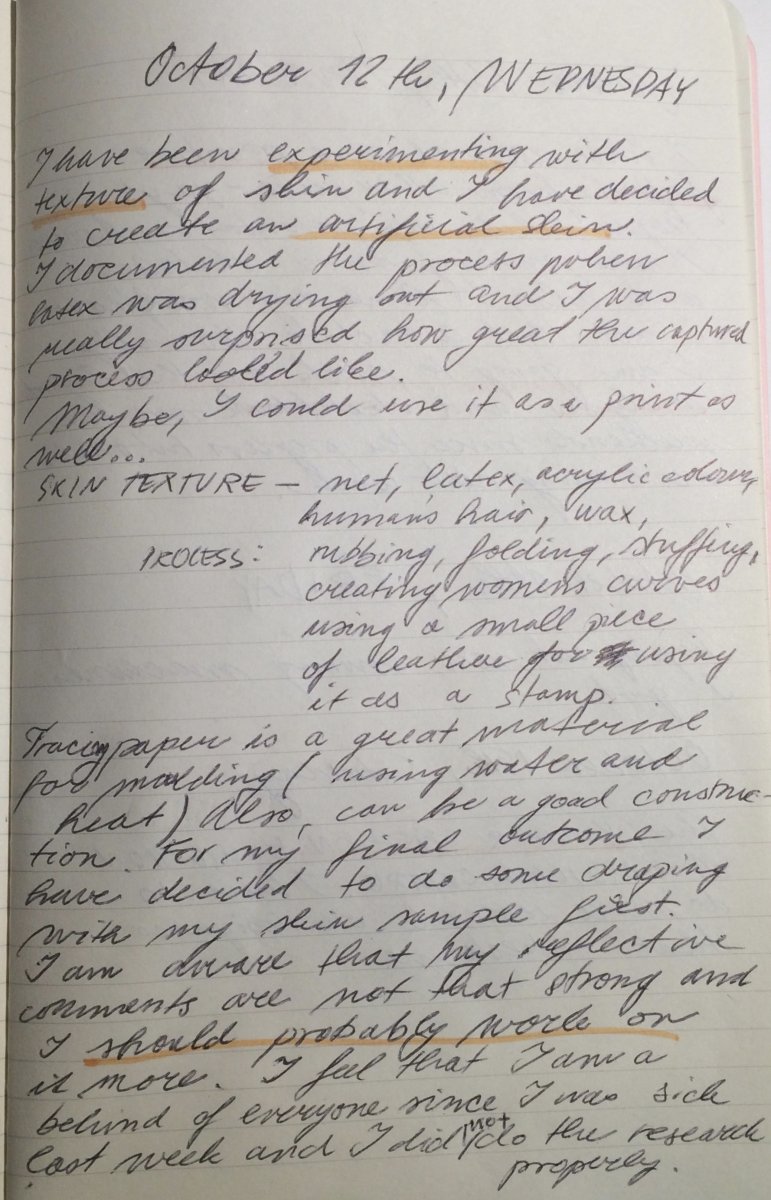 October 12th, WEDNESDAY
I have been experimenting with
texture of skin and I have decided
to create an artificial skin.
I documented the process when
latex was drying out and I was
really surprised how great the captured
process looked like.
Maybe, I could use it as a print as
well...
SKIN TEXTURE – net, latex, acrylic colour,
human's hair, wax,
PROCESS: rubbing, folding, stuffing,
creating womens curves
using a small piece
of leather for using
it as a stamp.
Tracing paper is a great material
for molding (using water and
heat) Also, can be a good construc-
tion. For my final outcome I
have decided to do some draping
with my skin sample first.
I am aware that my reflective
comments are not that strong and
I should probably work on
it more. I feel that I am a
behind of everyone since I was sick
last week and I did not do the research
properly.